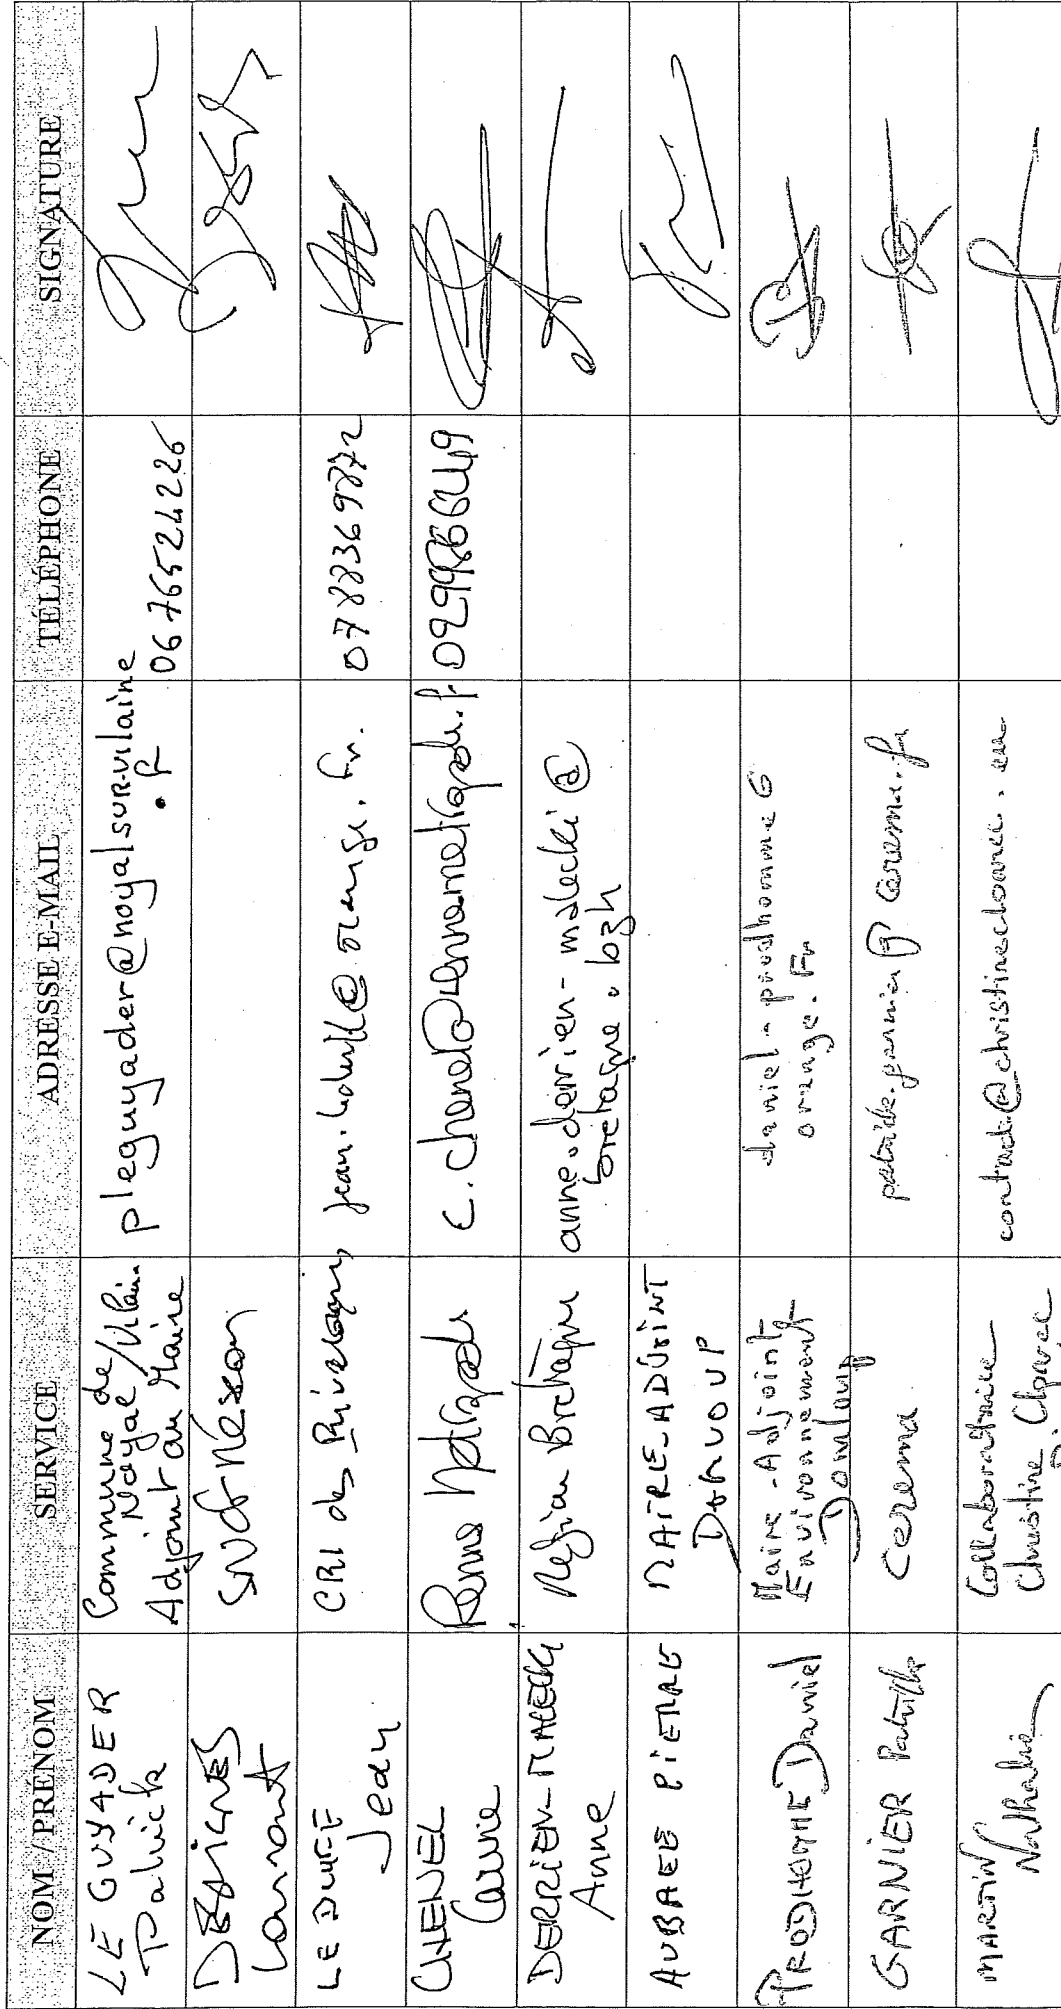 NOM / PRÉNOM SERVICE ADRESSE E-MAIL TÉLÉPHONE SIGNATURE
LE GUYADER
Patrick
Commune de
Noyal / Vilaine
Adjoint au Maire
pleguyader@noyalsurvilaine
.fr
0676524226
LE DUFF
Jean
CRI des Riverains
@orange.fr.
0788369872
CHENEL
Carine
Rennes Métropole
c.chenel@rennesmetropole.fr
0299866449
DERRIEN-MALECKI
Anne
Région Bretagne
anne.derrien-malecki@
bretagne.bzh
AUBREE PIERRE
MAIRE-ADJOINT
PRODHOMME Daniel
Maire-Adjoint
Environnement
Domloup
daniel-prodhomme@
orange.fr
GARNIER Patrick
Cerema
@cerema.fr
MARTIN
Nathalie
Collaboratrice
Christine Cloarec
contact@christinecloarec.eu